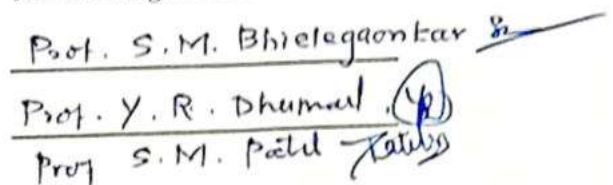 Prof. S.M. Bhielegaonkar
Prof. Y. R. Dhumal
Prof S.M. Patil